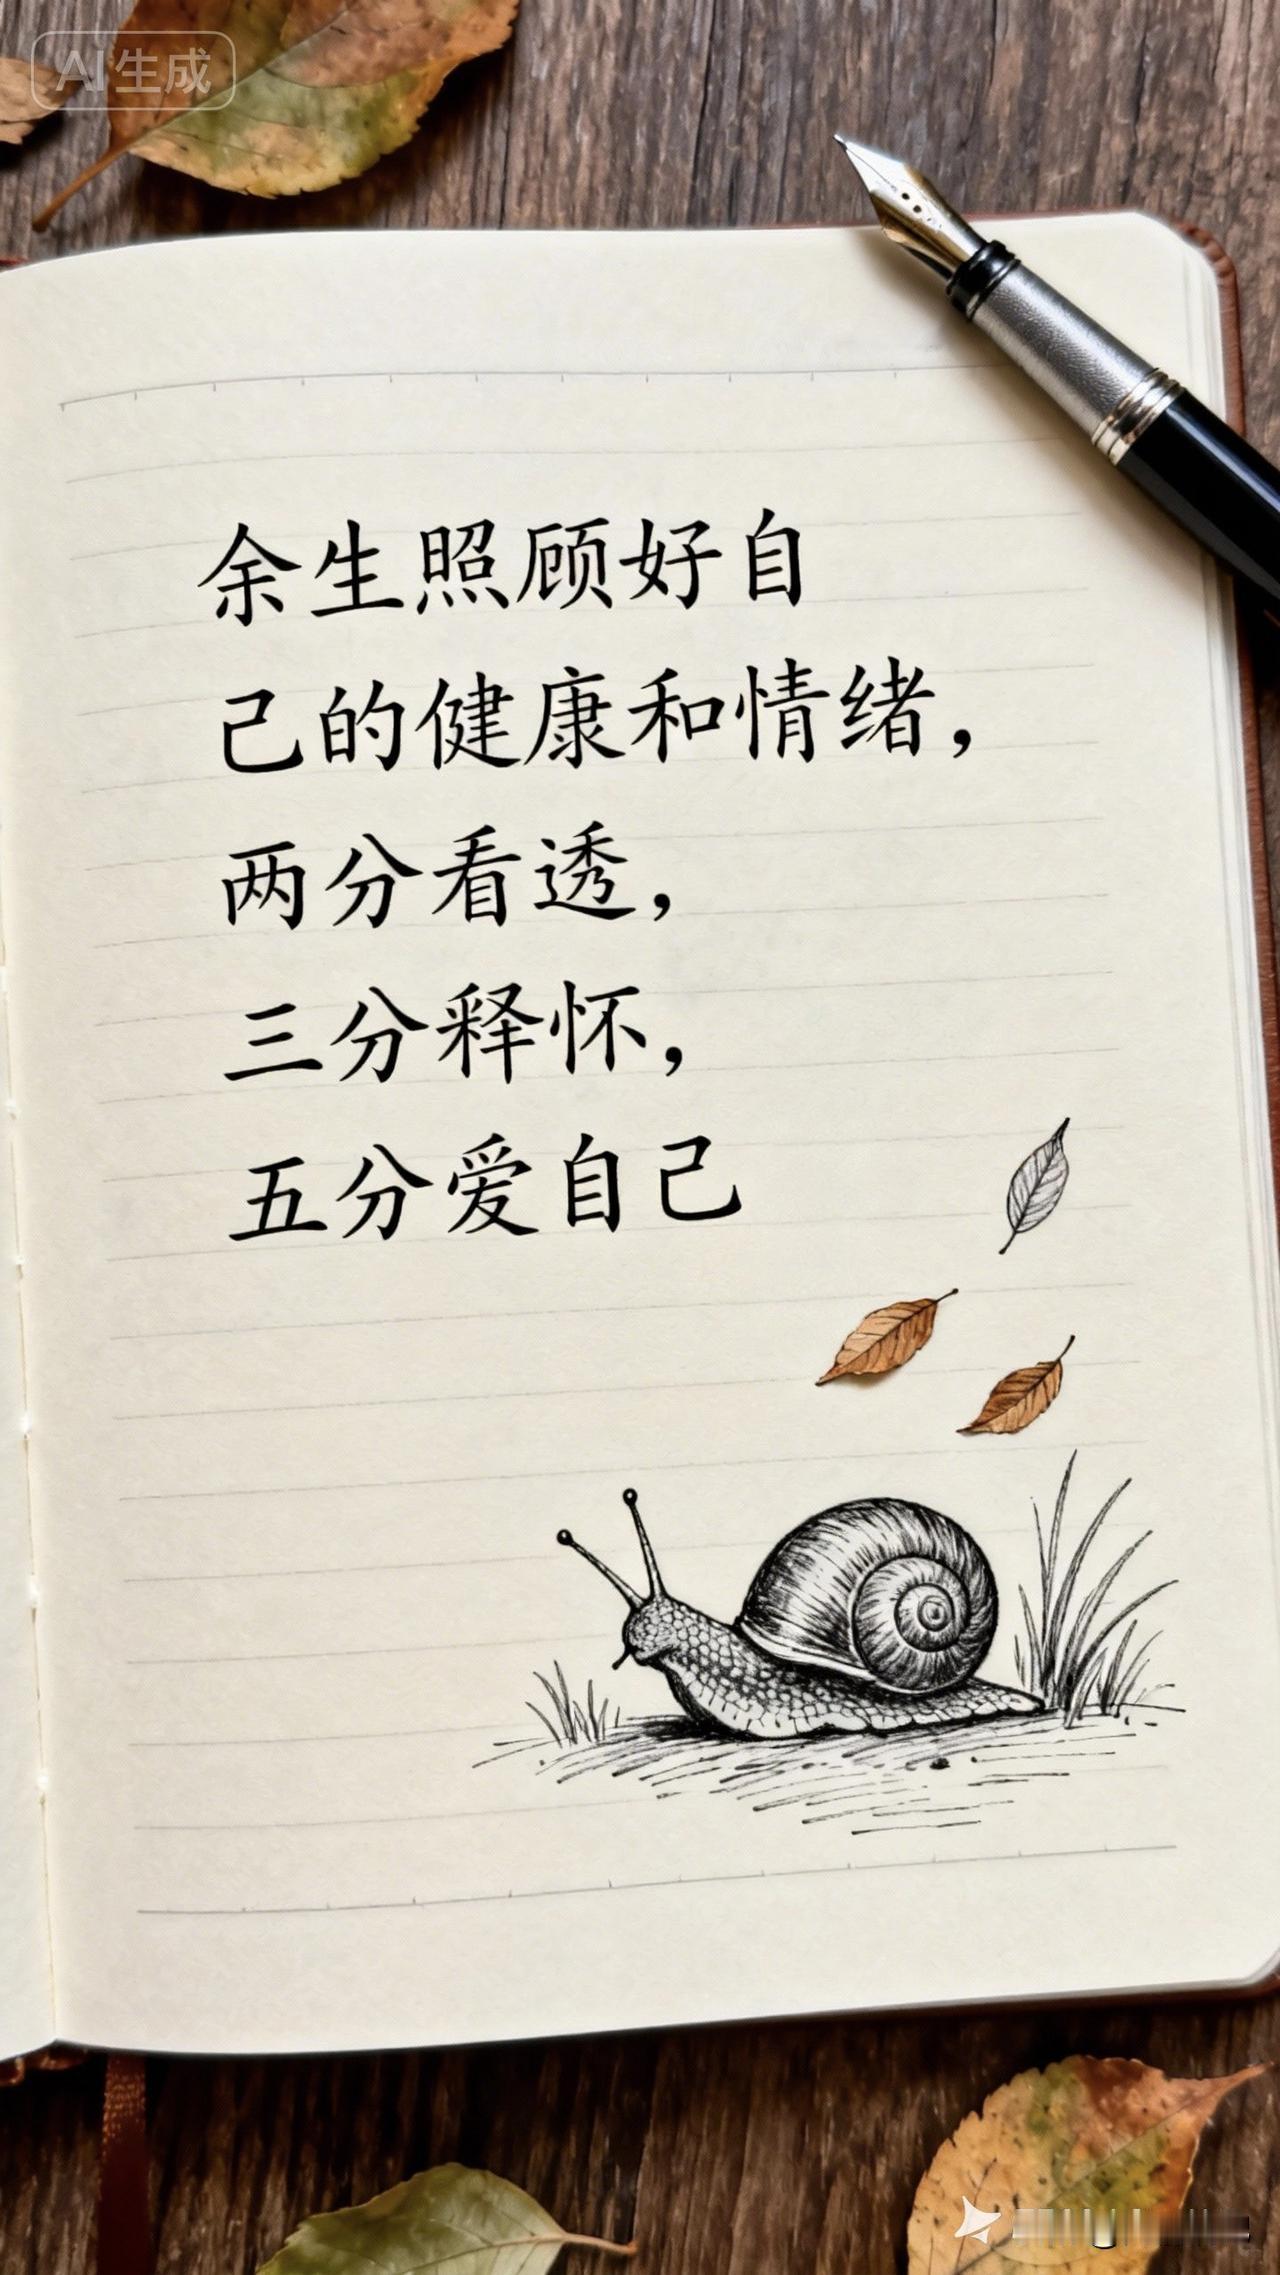 AI生成
余生照顾好自
己的健康和情绪，
两分看透，
三分释怀，
五分爱自己